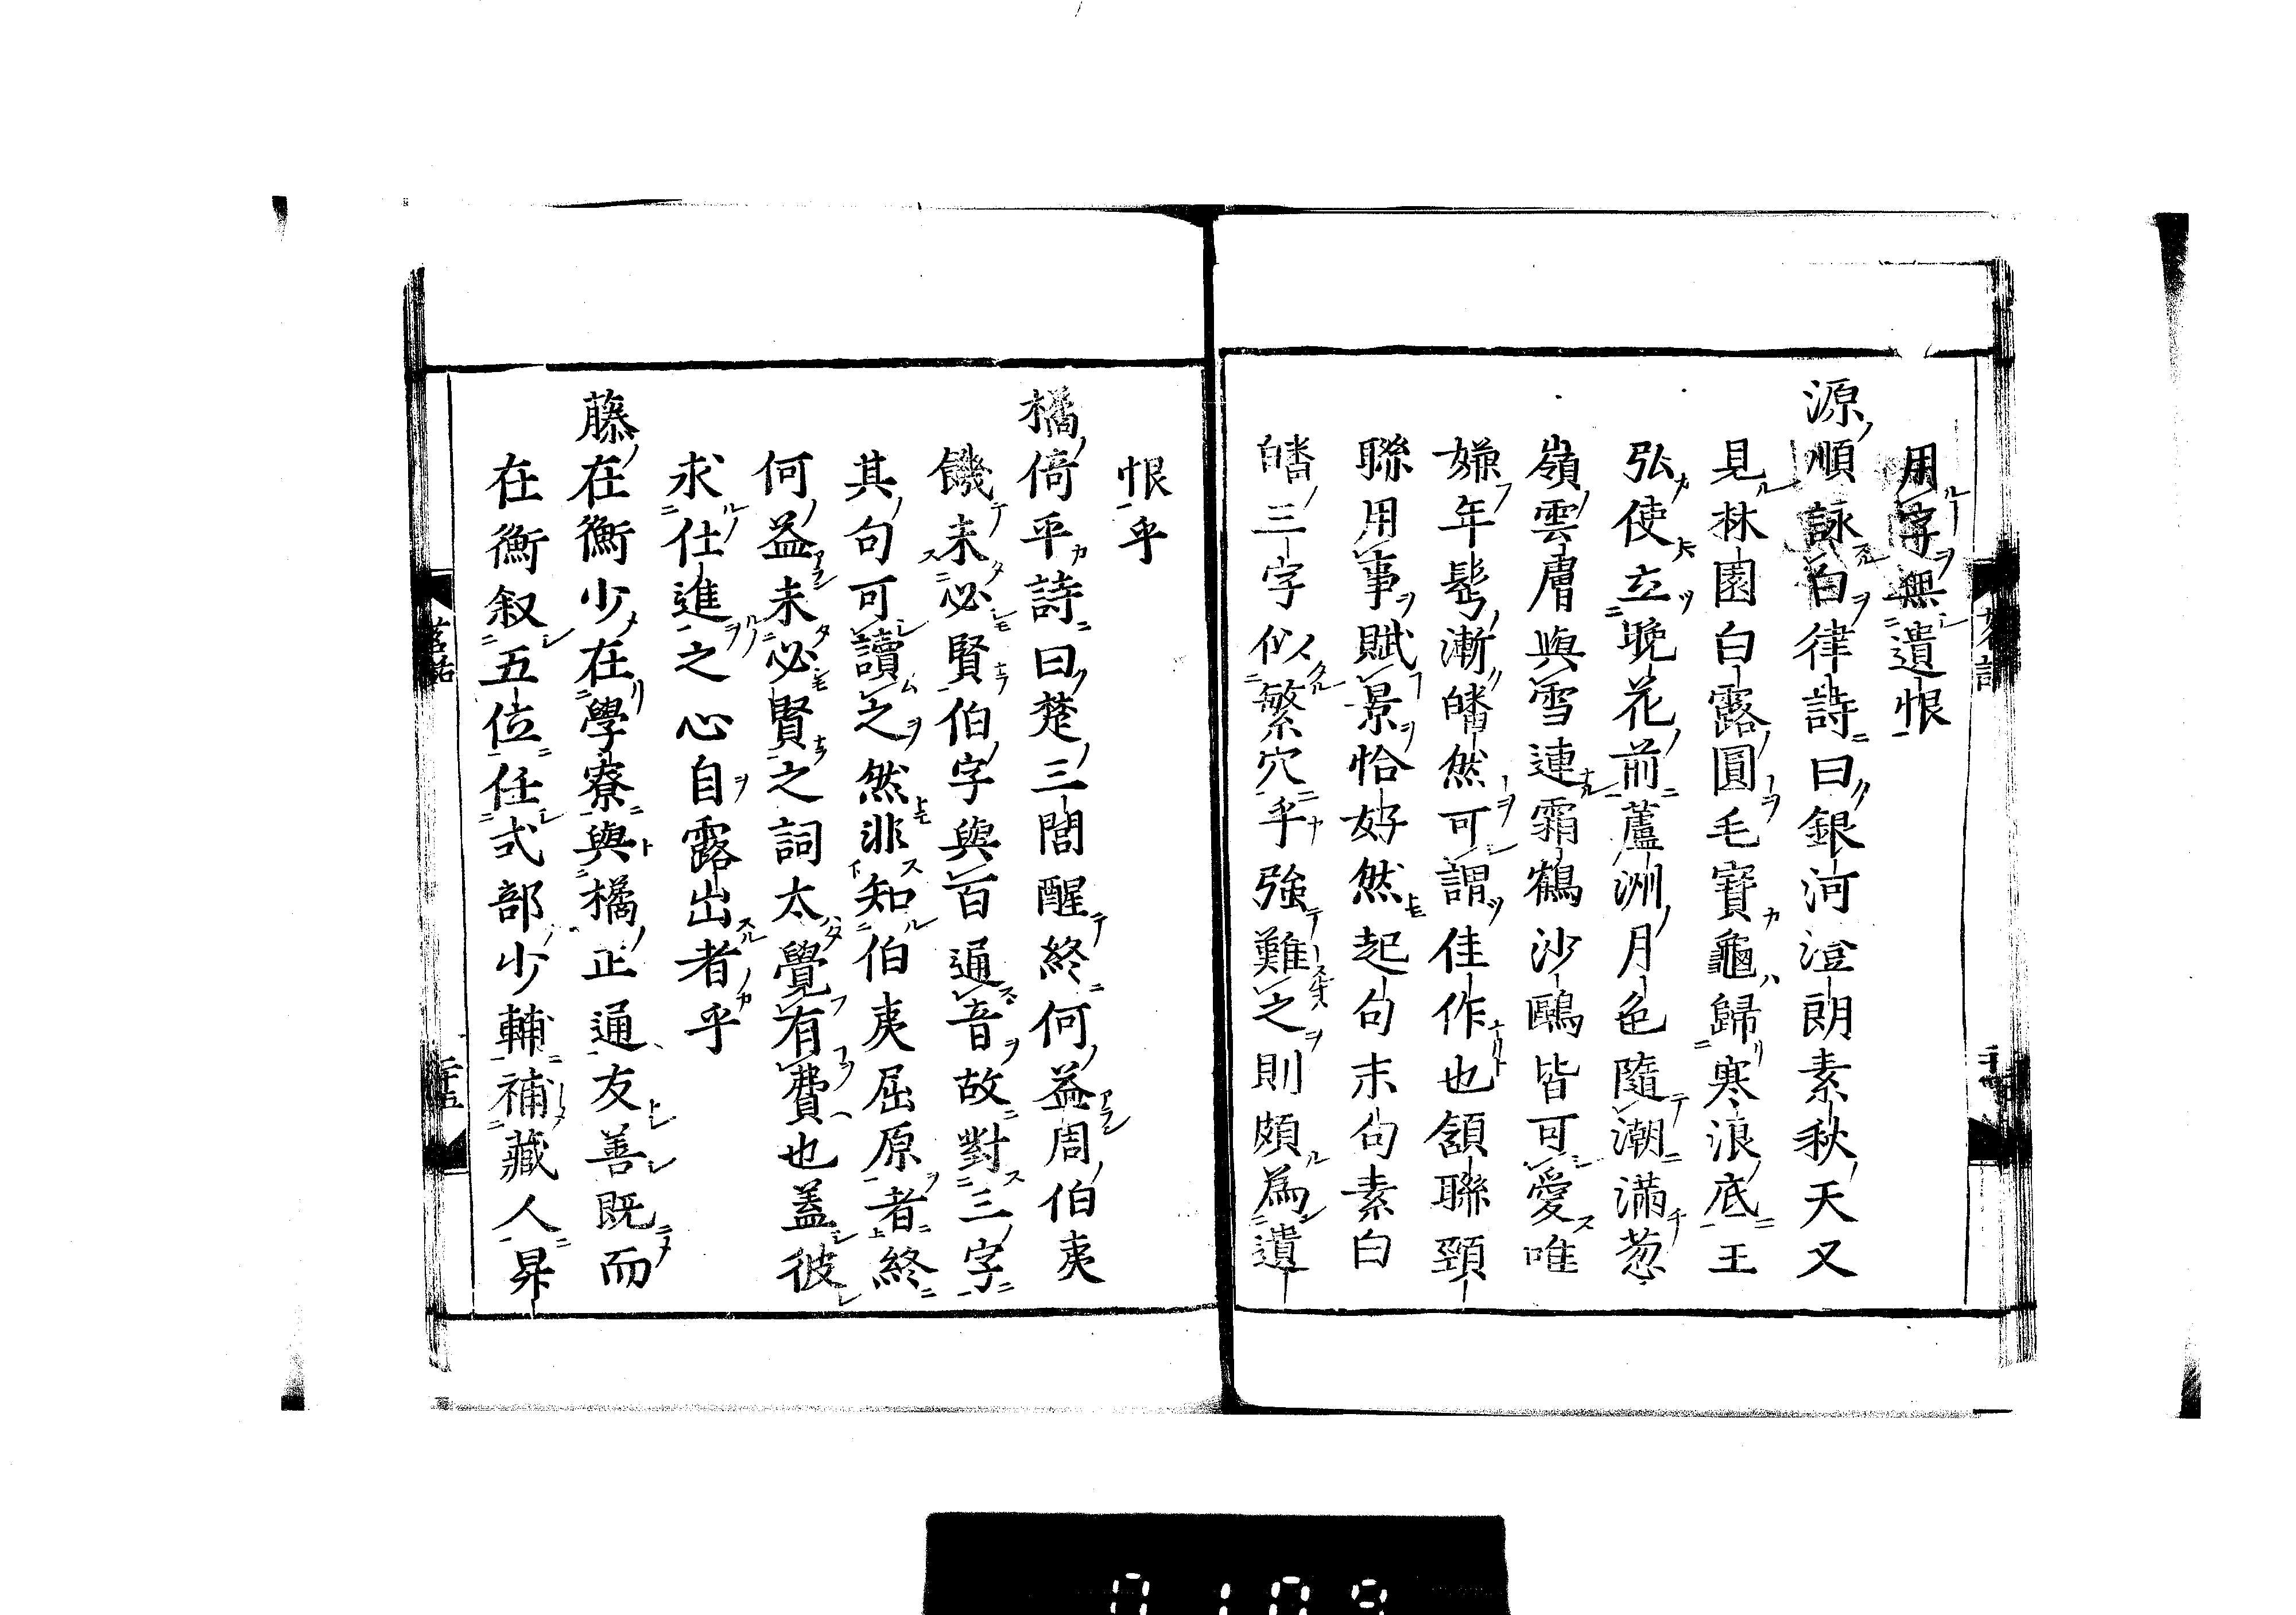 用字無遺恨
源順詠白律詩曰銀河澄朗素秋天又
見林園白露圓毛寶龜歸寒浪底王
弘使立晚花前蘆洲月色隨潮滿葱
嶺雲膚與雪連霜鶴沙鷗皆可愛唯
嫌年髩漸皤然可謂佳作也頷聯頸
聯用事賦景恰好然起句末句素白
皤三字似繁穴乎強難之則頗爲遺
恨乎
橘倚平詩曰楚三閭醒終何益周伯夷
饑未必賢伯字與百通音故對三字
其句可讀之然非知伯夷屈原者終
何益未必賢之詞太覺有費也蓋彼
求仕進之心自露出者乎
藤在衡少在學寮與橘正通友善既而
在衡叙五位任式部少輔補藏人昇
0109